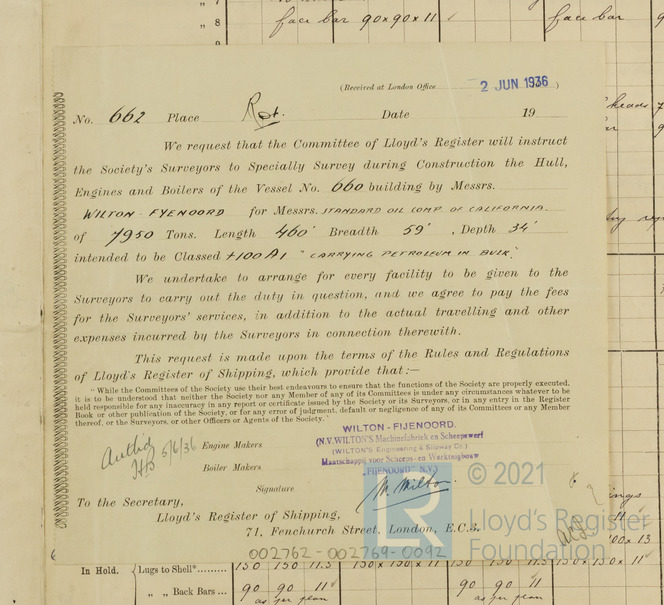 8 face bar 90x90x11 face bar 9
(Received at London Office 2 JUN 1936 )
No. 662 Place Rot. Date 19
We request that the Committee of Lloyd's Register will instruct
the Society's Surveyors to Specially Survey during Construction the Hull,
Engines and Boilers of the Vessel No. 660 building by Messrs.
WILTON-FYENOORD for Messrs. STANDARD OIL COMP. OF CALIFORNIA.
of 7950 Tons. Length 460' Breadth 59' , Depth 34'
intended to be Classed +100A1 "CARRYING PETROLEUM IN BULK".
We undertake to arrange for every facility to be given to the
Surveyors to carry out the duty in question, and we agree to pay the fees
for the Surveyors' services, in addition to the actual travelling and other
expenses incurred by the Surveyors in connection therewith.
This request is made upon the terms of the Rules and Regulations
of Lloyd's Register of Shipping, which provide that:—
"While the Committees of the Society use their best endeavours to ensure that the functions of the Society are properly executed,
it is to be understood that neither the Society nor any Member of any of its Committees is under any circumstances whatever to be
held responsible for any inaccuracy in any report or certificate issued by the Society or its Surveyors, or in any entry in the Register
Book or other publication of the Society, or for any error of judgment, default or negligence of any of its Committees or any Member
thereof, or the Surveyors, or other Officers or Agents of the Society."
WILTON-FIJENOORD.
(N.V. WILTON'S Machinefabriek en Scheepswerf
(WILTON'S Engineering & Slipway Co.)
Maatschappij voor Scheeps- en Werktuigbouw
"FIJENOORD" N.V.)
5/6/36
Engine Makers
Boiler Makers
Signature M. Wilton
To the Secretary,
Lloyd's Register of Shipping,
71, Fenchurch Street, London, E.C.3.
002762-002769-0092
LR
© 2021
Lloyd's Register
Foundation
In Hold. Lugs to Shell*
" " Back Bars ... 90 90 11 90 90 11
as per plan as per plan